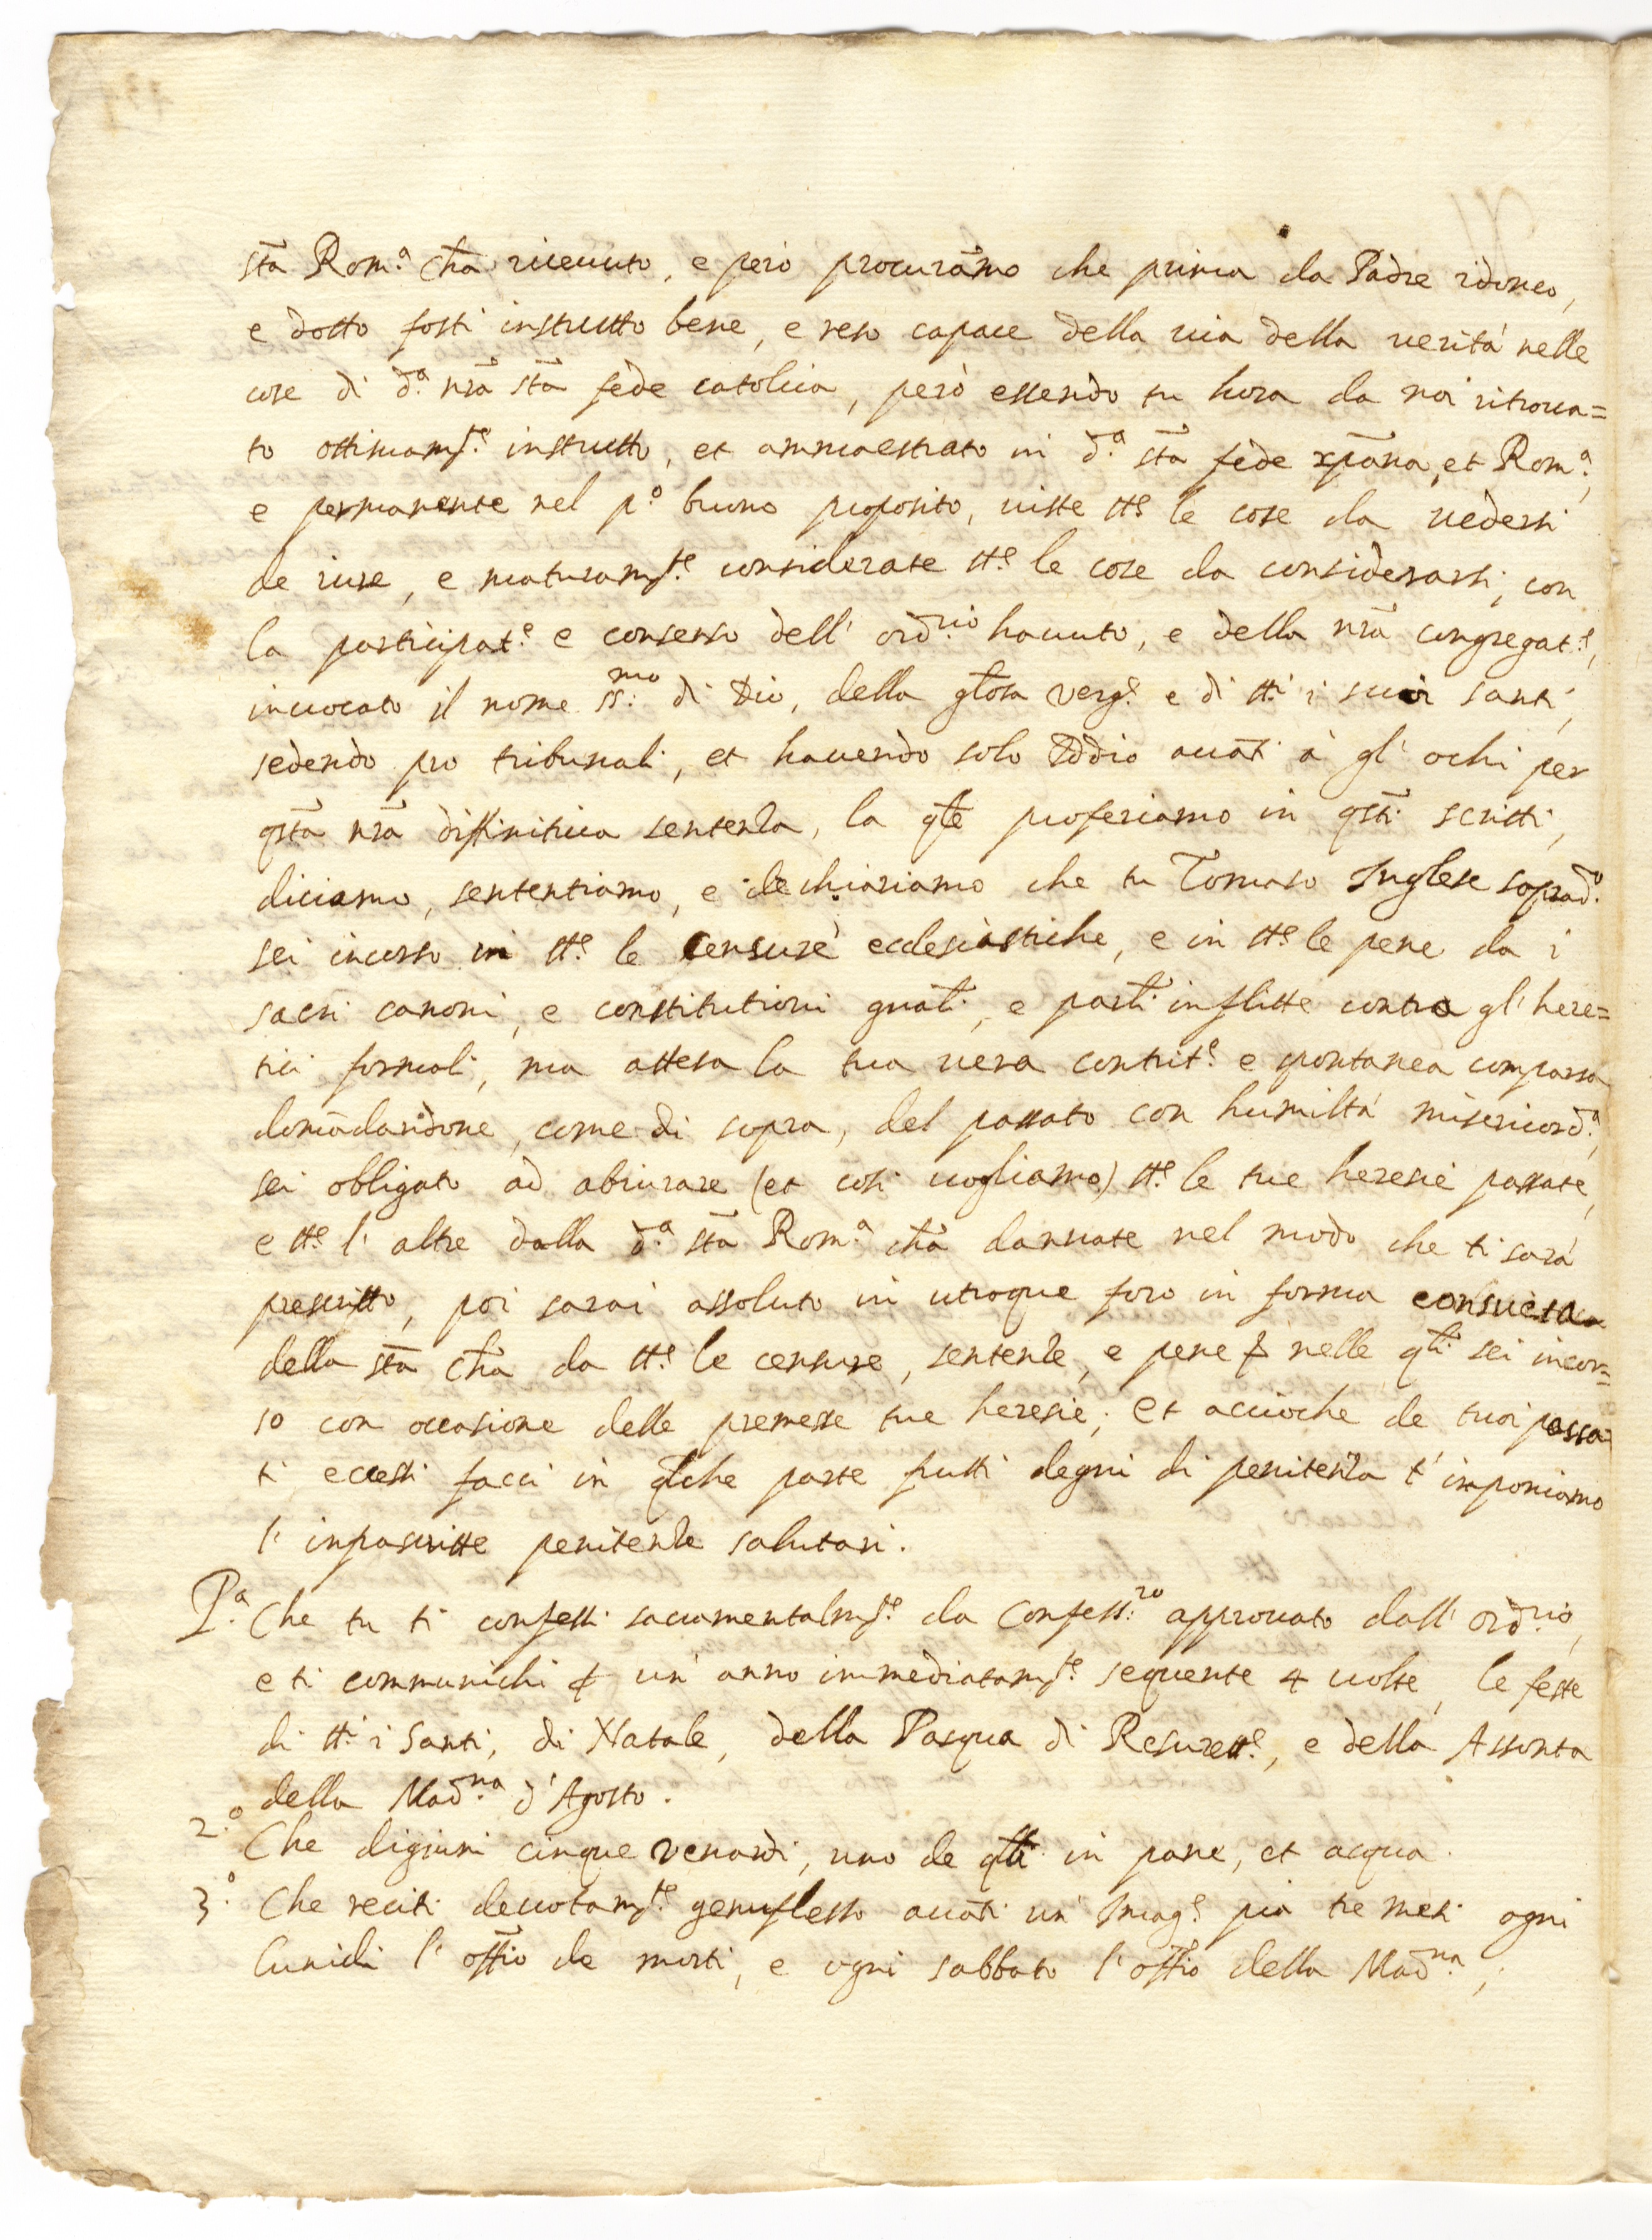 sta Rom.a cha riceuuto, e però procuramo che prima da Padre idoneo,
e dotto fosti instrutto bene, e reso capace della uia della uerità nelle
cose di d.a nra sta fede catolica, però essendo tu hora da noi ritroua=
to ottimamte. instrutto, et ammaestrato in d.a sta fede xpana, et Rom.a,
e permanente nel p.o buono proposito, uiste tte le cose da uedersi
de iure, e maturamte. considerate tte le cose da considerarsi, con
la participat.e e consenso dell' ord.rio hauuto, e della nra congregat.e,
inuocato il nome ss.mo di Dio, della glosa verg.e e di tti i suoi santi,
sedendo pro tribunali, et hauendo solo Iddio auati à gl' ochi per
qsta nra diffinitiua sentenza, la qle proferiamo in qsti scritti,
diciamo, sententiamo, e dechiariamo che tu Tomaso Inglese soprad.o
sei incorso in tte le censure ecclesiastiche, e in tte le pene da i
sacri canoni, e constitutioni gnali, e parti inflitte contra gl' here=
tici formali, ma attesa la tua uera contrit.e e spontanea comparsa
domadandone, come di sopra, del passato con humiltà misericord.a,
sei obligato ad abiurare (et cosi uogliamo) tte le tue heresie passate,
e tte l' altre dalla d.a sta Rom.a cha dannate nel modo che ti sarà
prescritto, poi sarai assoluto in utroque foro in forma consueta
della sta cha da tte le censure, sentenze, e pene nelle qli sei incor=
so con occasione delle premesse tue heresie; et accioche de tuoi passa=
ti eccessi facci in qlche parte frutti degni di penitenza t' imponiamo
l' infrascritte penitenze salutari.
P.a Che tu ti confessi sacramentalmte. da Confess.ro approuato dall' ord.rio,
e ti communichi p un' anno immediatamte. sequente 4 uolte, le feste
di tti i Santi, di Natale, della Pasqua di Resurett.e, e della Assonta
della Mad.na d' Agosto.
2.o Che digiuni cinque venardi, uno de qli in pane, et acqua.
3.o Che reciti deuotamte. genuflesso auati un' Imag.e pia tre mesi ogni
Lunidi l' offio de morti, e ogni sabbato l' offio della Mad.na,